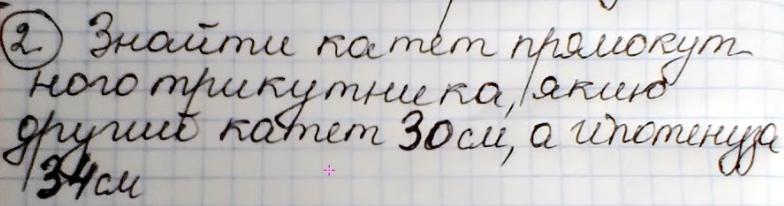 2. Знайти катет прямокут-
ного трикутника, якщо
другий катет 30 см, а гіпотенуза
34 см